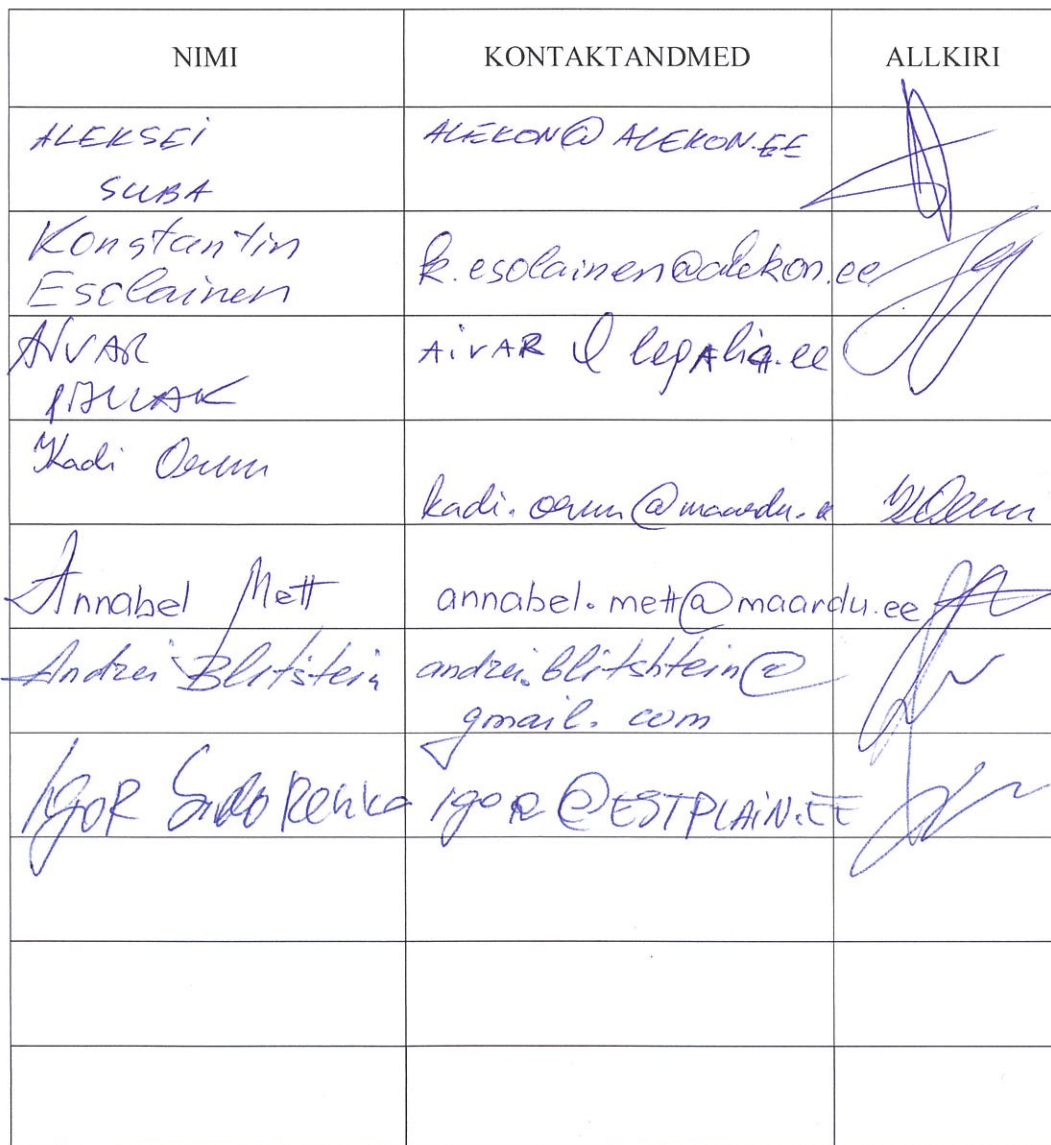 NIMI KONTAKTANDMED ALLKIRI
ALEKSEI ALEKON@ALEKON.EE
SUBA
Konstantin
Esolainen k.esolainen@alekon.ee
AIVAR AIVAR @ legAlia.ee
PILLAK
Kadi Oerum
kadi.oerum@maardu.ee
Annabel Mett annabel.mett@maardu.ee
Andrei Blitštein andrei.blitshtein@
gmail.com
IgoR SidoRenko igoR@ESTPLAIN.EE